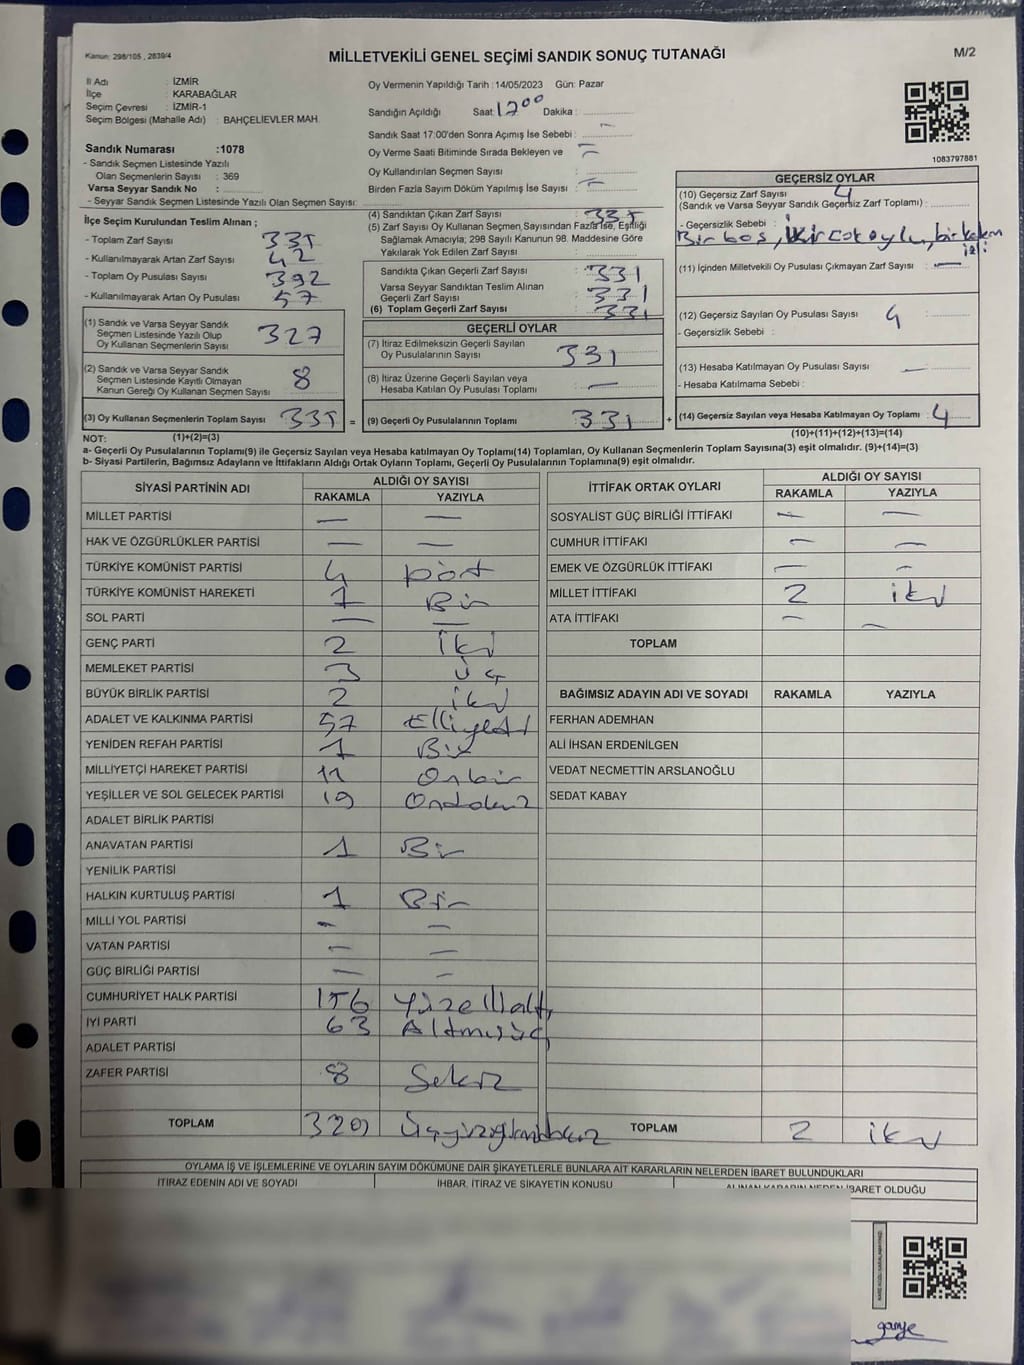 Kanun: 298/105 , 2839/4
MİLLETVEKİLİ GENEL SEÇİMİ SANDIK SONUÇ TUTANAĞI
M/2
İl Adı : İZMİR
İlçe : KARABAĞLAR
Seçim Çevresi : İZMİR-1
Seçim Bölgesi (Mahalle Adı) : BAHÇELİEVLER MAH.
Sandık Numarası :1078
- Sandık Seçmen Listesinde Yazılı
Olan Seçmenlerin Sayısı : 369
Varsa Seyyar Sandık No :
- Seyyar Sandık Seçmen Listesinde Yazılı Olan Seçmen Sayısı:
Oy Vermenin Yapıldığı Tarih : 14/05/2023 Gün: Pazar
Sandığın Açıldığı Saat: 17 00 Dakika :
Sandık Saat 17:00'den Sonra Açımış İse Sebebi : —
Oy Verme Saati Bitiminde Sırada Bekleyen ve —
Oy Kullandırılan Seçmen Sayısı :
Birden Fazla Sayım Döküm Yapılmış İse Sayısı : —
1083797881
İlçe Seçim Kurulundan Teslim Alınan ;
- Toplam Zarf Sayısı : 335
- Kullanılmayarak Artan Zarf Sayısı : 42
- Toplam Oy Pusulası Sayısı : 392
- Kullanılmayarak Artan Oy Pusulası : 57
(1) Sandık ve Varsa Seyyar Sandık
Seçmen Listesinde Yazılı Olup
Oy Kullanan Seçmenlerin Sayısı 327
(2) Sandık ve Varsa Seyyar Sandık
Seçmen Listesinde Kayıtlı Olmayan
Kanun Gereği Oy Kullanan Seçmen Sayısı 8
(3) Oy Kullanan Seçmenlerin Toplam Sayısı 335 =
(1)+(2)=(3)
(4) Sandıktan Çıkan Zarf Sayısı : 335
(5) Zarf Sayısı Oy Kullanan Seçmen Sayısından Fazla İse, Eşitliği
Sağlamak Amacıyla; 298 Sayılı Kanunun 98. Maddesine Göre
Yakılarak Yok Edilen Zarf Sayısı :
Sandıkta Çıkan Geçerli Zarf Sayısı : 331
Varsa Seyyar Sandıktan Teslim Alınan
Geçerli Zarf Sayısı : 331
(6) Toplam Geçerli Zarf Sayısı : 331
GEÇERLİ OYLAR
(7) İtiraz Edilmeksizin Geçerli Sayılan
Oy Pusulalarının Sayısı 331
(8) İtiraz Üzerine Geçerli Sayılan veya
Hesaba Katılan Oy Pusulası Toplamı —
(9) Geçerli Oy Pusulalarının Toplamı 331 +
GEÇERSİZ OYLAR
(10) Geçersiz Zarf Sayısı 4
(Sandık ve Varsa Seyyar Sandık Geçersiz Zarf Toplamı) :
- Geçersizlik Sebebi :
Bir boş, bir çok oylu, bir kalem
izli
(11) İçinden Milletvekili Oy Pusulası Çıkmayan Zarf Sayısı : —
(12) Geçersiz Sayılan Oy Pusulası Sayısı :
- Geçersizlik Sebebi :
(13) Hesaba Katılmayan Oy Pusulası Sayısı : —
- Hesaba Katılmama Sebebi :
(14) Geçersiz Sayılan veya Hesaba Katılmayan Oy Toplamı : 4
(10)+(11)+(12)+(13)=(14)
NOT:
a- Geçerli Oy Pusulalarının Toplamı(9) ile Geçersiz Sayılan veya Hesaba katılmayan Oy Toplamı(14) Toplamları, Oy Kullanan Seçmenlerin Toplam Sayısına(3) eşit olmalıdır. (9)+(14)=(3)
b- Siyasi Partilerin, Bağımsız Adayların ve İttifakların Aldığı Ortak Oyların Toplamı, Geçerli Oy Pusulalarının Toplamına(9) eşit olmalıdır.
SİYASİ PARTİNİN ADI ALDIĞI OY SAYISI
RAKAMLA YAZIYLA
MİLLET PARTİSİ — —
HAK VE ÖZGÜRLÜKLER PARTİSİ — —
TÜRKİYE KOMÜNİST PARTİSİ 4 Dört
TÜRKİYE KOMÜNİST HAREKETİ 1 Bir
SOL PARTİ — —
GENÇ PARTİ 2 İki
MEMLEKET PARTİSİ 3 Üç
BÜYÜK BİRLİK PARTİSİ 2 iki
ADALET VE KALKINMA PARTİSİ 57 Elliyedi
YENİDEN REFAH PARTİSİ 1 Bir
MİLLİYETÇİ HAREKET PARTİSİ 11 Onbir
YEŞİLLER VE SOL GELECEK PARTİSİ 19 Ondokuz
ADALET BİRLİK PARTİSİ
ANAVATAN PARTİSİ 1 Bir
YENİLİK PARTİSİ
HALKIN KURTULUŞ PARTİSİ 1 Bir
MİLLİ YOL PARTİSİ — —
VATAN PARTİSİ — —
GÜÇ BİRLİĞİ PARTİSİ — —
CUMHURİYET HALK PARTİSİ 156 Yüzellialtı
İYİ PARTİ 63 Altmışüç
ADALET PARTİSİ
ZAFER PARTİSİ 8 Sekiz
TOPLAM 329 Üçyüzyirmidokuz
İTTİFAK ORTAK OYLARI ALDIĞI OY SAYISI
RAKAMLA YAZIYLA
SOSYALİST GÜÇ BİRLİĞİ İTTİFAKI — —
CUMHUR İTTİFAKI — —
EMEK VE ÖZGÜRLÜK İTTİFAKI — —
MİLLET İTTİFAKI 2 iki
ATA İTTİFAKI — —
TOPLAM
BAĞIMSIZ ADAYIN ADI VE SOYADI RAKAMLA YAZIYLA
FERHAN ADEMHAN
ALİ İHSAN ERDENİLGEN
VEDAT NECMETTİN ARSLANOĞLU
SEDAT KABAY
TOPLAM 2 iki
OYLAMA İŞ VE İŞLEMLERİNE VE OYLARIN SAYIM DÖKÜMÜNE DAİR ŞİKAYETLERLE BUNLARA AİT KARARLARIN NELERDEN İBARET BULUNDUKLARI
İTİRAZ EDENİN ADI VE SOYADI İHBAR, İTİRAZ VE ŞİKAYETİN KONUSU ALINAN KARARIN NEDEN İBARET OLDUĞU